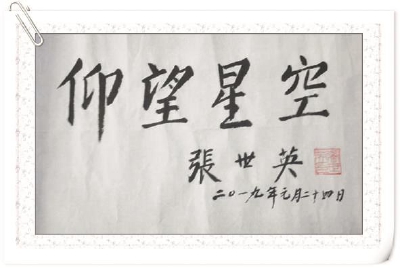 仰望星空
張世英
二〇一九年元月二十四日